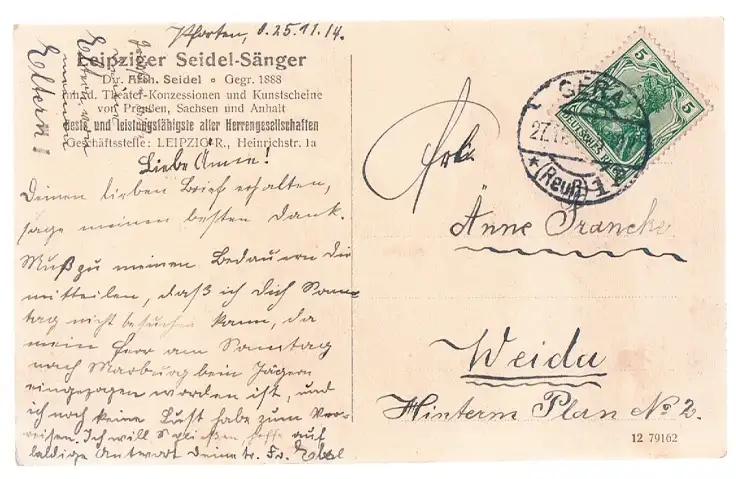 Pforten, d. 25.11.14.
Leipziger Seidel-Sänger
Dir. Arth. Seidel • Gegr. 1888
Inhad. Theater-Konzessionen und Kunstscheine
von Preußen, Sachsen und Anhalt
Beste und leistungsfähigste aller Herrengesellschaften
Geschäftsstelle: LEIPZIG-R., Heinrichstr. 1a
Liebe Anne!
Deinen lieben Brief erhalten,
sage meinen besten Dank.
Muß zu meinen Bedauern dir
mitteilen, daß ich dich Sonn-
tag nicht besuchen kann, da
mein am Samstag
nach Marburg bein Jägern
eingezogen worden ist, und
ich noch keine Lust habe zum Ver-
reisen. Ich will hoffe auf
baldige Antwort Deine tr. Fr.
Eltern!
GERA
27.11.
(Reuß)
DEUTSCHES REICH
5
5
Änne Francke
Weida
Hinterm Plan No 2.
12 79162